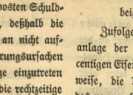 vosten Schuld-
, deßhalb die
an nicht auf-
rungsursachen
ge einzutreten
die rechtzeitige
bei
Zufolge
anlage der
centigen Eisen
weise, die